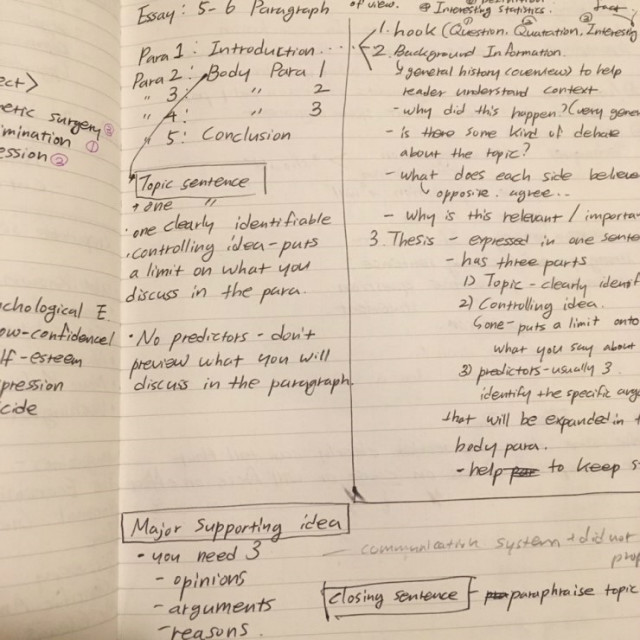 Essay: 5-6 Paragraph
Para 1: Introduction....
Para 2: Body Para 1
" 3: " 2
" 4: " 3
" 5: Conclusion
Topic sentence
one "
· one clearly identifiable
· controlling idea - puts
a limit on what you
discuss in the para.
· No predictors - don't
preview what you will
discuss in the paragraph.
of view.
Interesting statistics.
1. hook (Question, Quatation, Interesting
2. Background Information.
general history (overview) to help
reader understand context
- why did this happen? (very gener
- is there some kind of debate
about the topic?
- what does each side believe
opposite. agree...
- why is this relevant / importa
3. Thesis - expressed in one sente
- has three parts
1) Topic - clearly identif
2) Controlling idea.
one - puts a limit onto
what you say about
3) predictors - usually 3
identify the specific argu
that will be expanded in t
body para.
- help to keep s
ect>
etic surgery ③
imination ①
ession ②
chological E.
ow-confidence
lf-esteem
pression
cide
Major Supporting idea
· you need 3
- opinions
- arguments
- reasons.
- communication system + did not
prop
Closing sentence - paraphraise topic